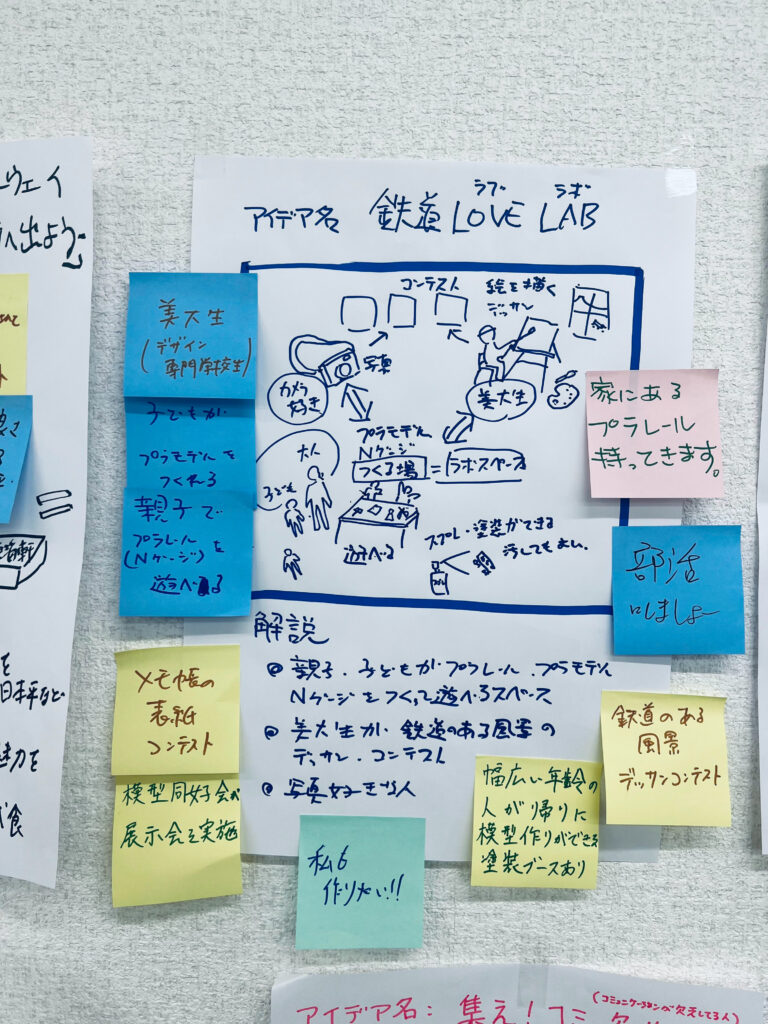 ウェイ
へ出よう
アイデア名 鉄道LOVE LAB
ラブ ラボ
コンテスト
絵を描く
デッサン
写真
カメラ
好き
美大生
プラモデル
Nゲージ
つくる場=ラボスペース
大人
子ども
遊べる
スプレー塗装ができる
汚してもよい。
解説
親子、子どもがプラレール、プラモデル
Nゲージをつくって遊べるスペース
美大生が、鉄道のある風景の
デッサン、コンテスト
写真好きな人
美大生
(デザイン
専門学校生)
子どもが
プラモデルを
つくれる
親子で
プラレール
(Nゲージ)を
遊べる
メモ帳の
表紙
コンテスト
模型同好会が
展示会を実施
私も
作りたい!!
幅広い年齢の
人が帰りに
模型作りができる
塗装ブースあり
鉄道のある
風景
デッサンコンテスト
部活
にしましょー
家にある
プラレール
持ってきます。
を
日本平など
魅力を
食
アイデア名: 集え!コミ